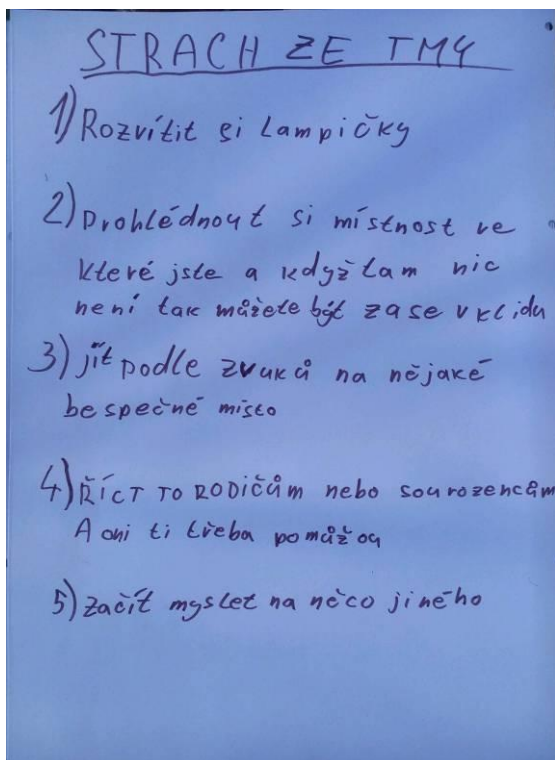 STRACH ZE TMY
1) Rozvítit si Lampičky
2) Prohlédnout si místnost ve
které jste a když tam nic
není tak můžete být zase v klidu
3) jít podle zvuků na nějaké
bespečné místo
4) Říct to rodičům nebo sourozencům
A oni ti třeba pomůžou
5) začít myslet na něco jiného